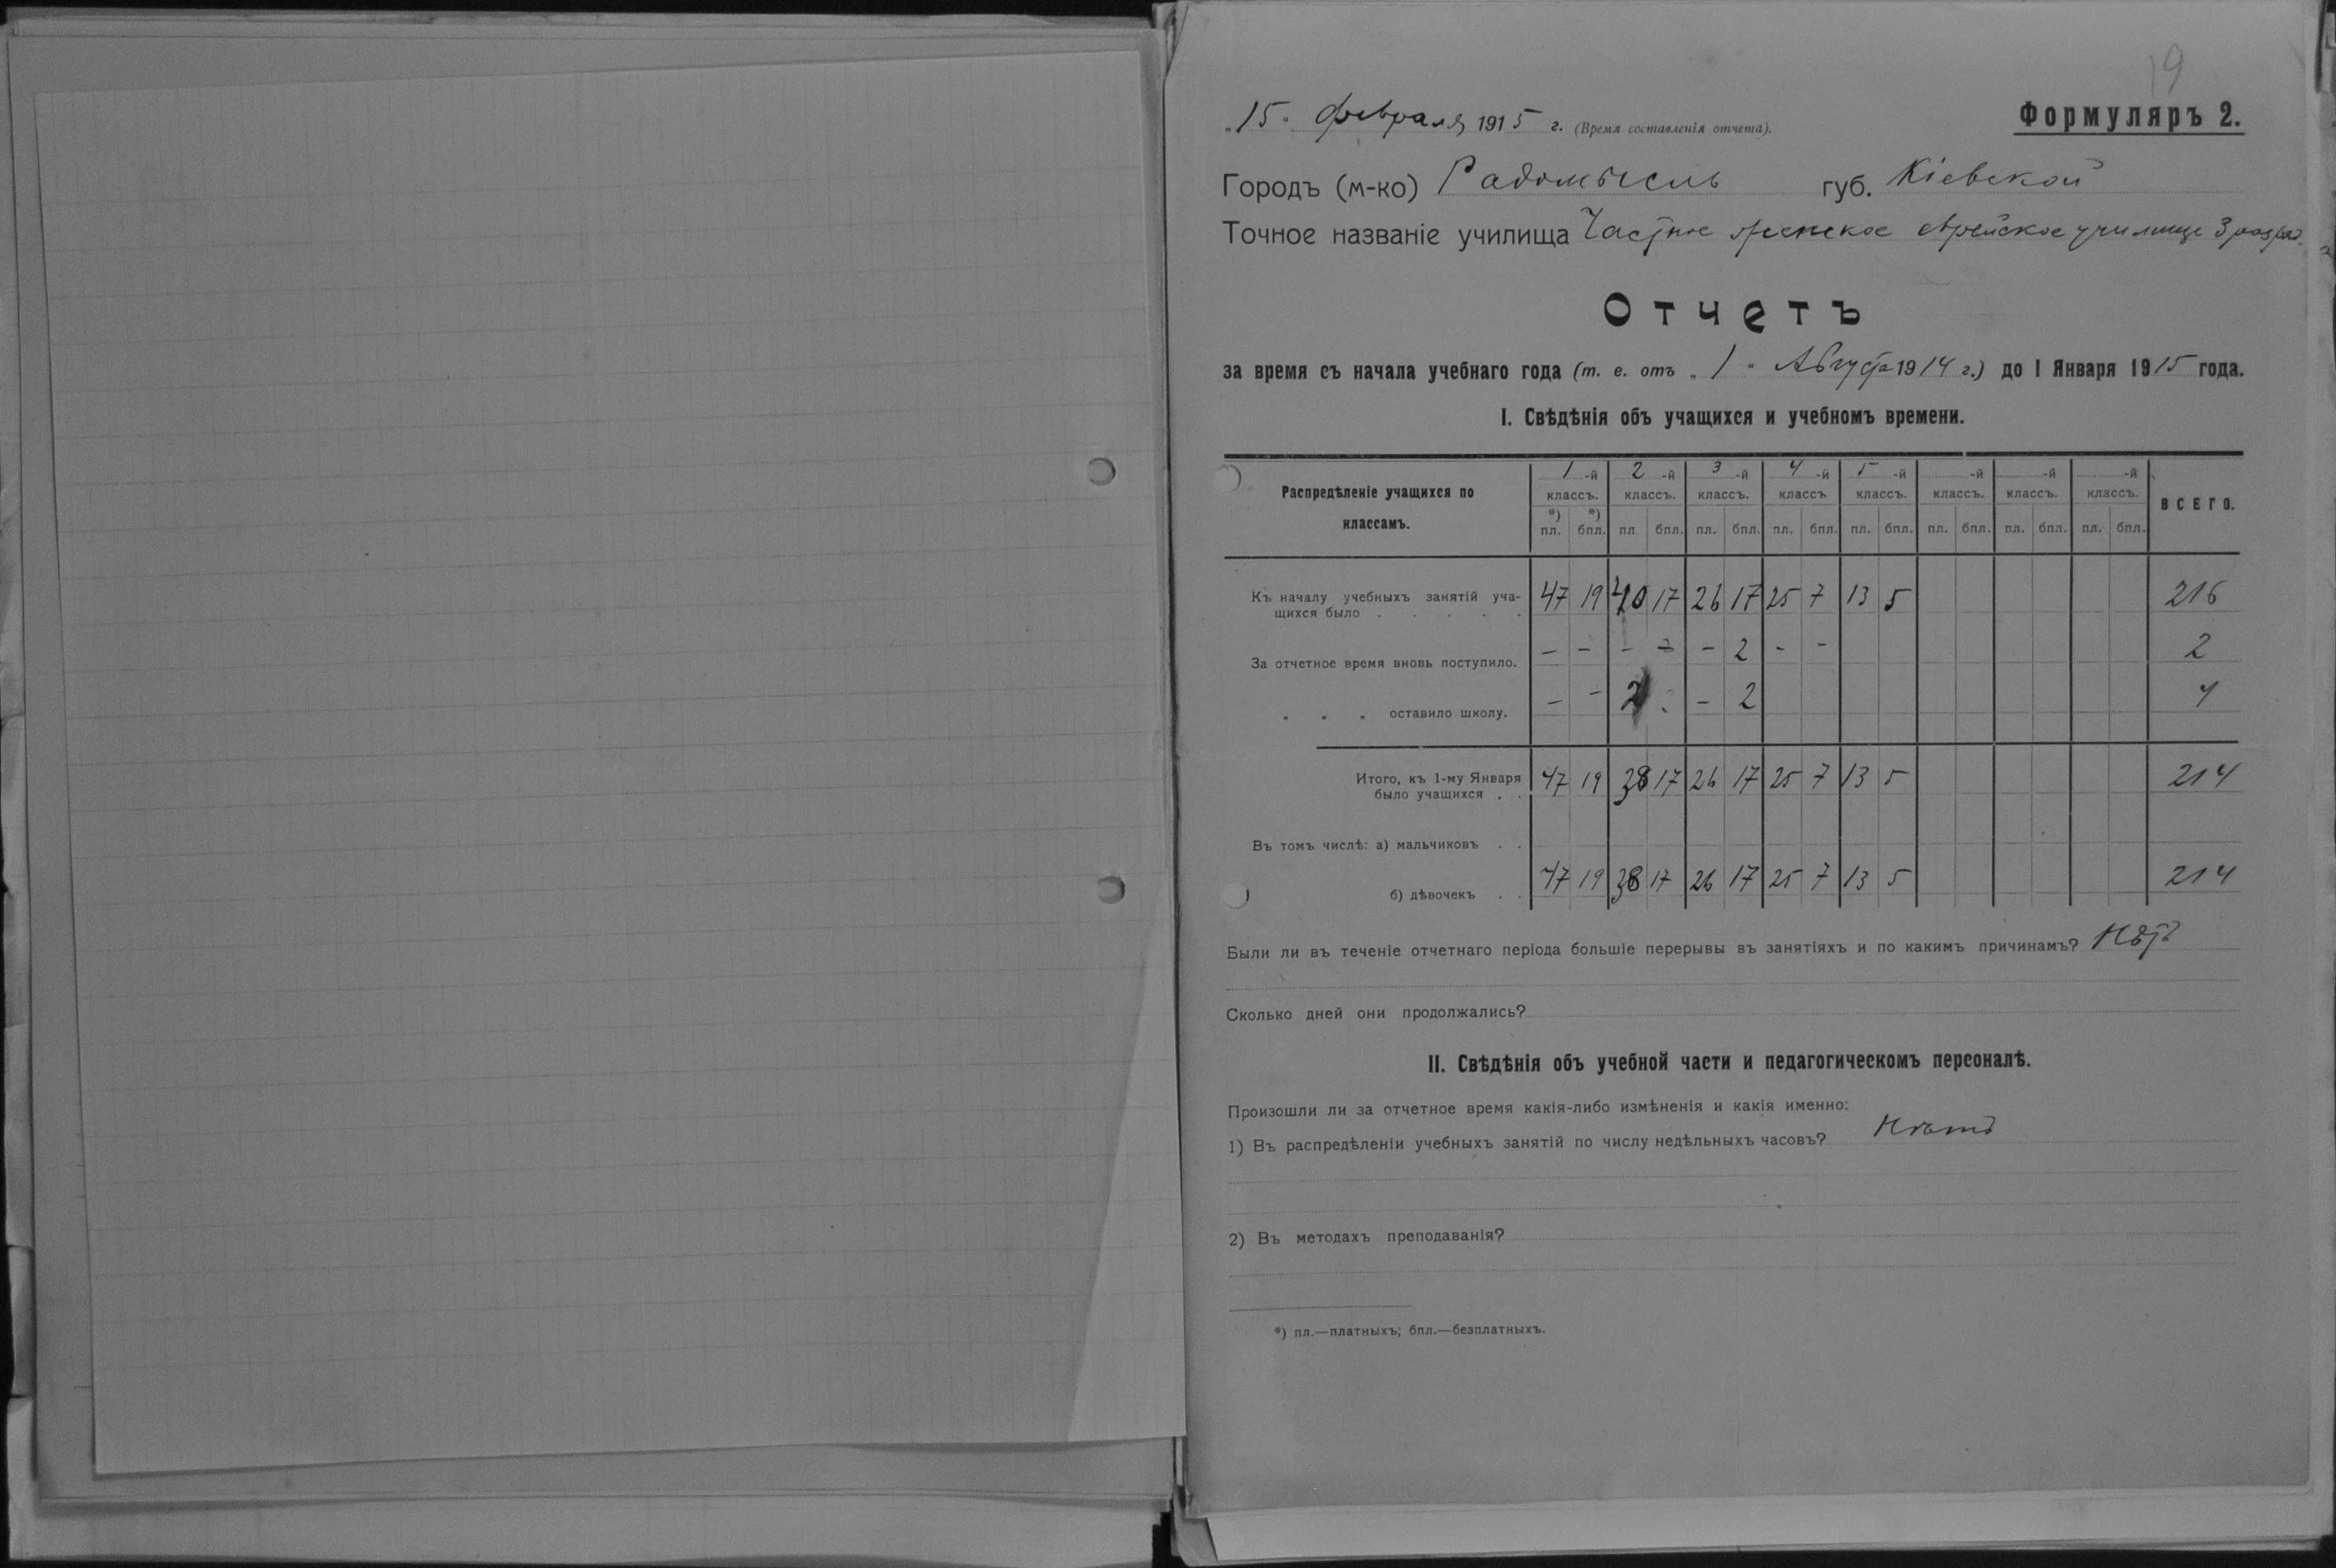 19
"15" февраля 1915 г. (Время составленія отчета).
Формуляръ 2.
Городъ (м-ко) Радомысль губ. Кіевской
Точное названіе училища Частное женское еврейское училище 3 разряд.
Отчетъ
за время съ начала учебнаго года (т. е. отъ "1" Августа 1914 г.) до 1 Января 1915 года.
I. Свѣдѣнія объ учащихся и учебномъ времени.
Распредѣленіе учащихся по классамъ.
1-й классъ. 2-й классъ. 3-й классъ. 4-й классъ 5-й классъ. -й классъ. -й классъ. -й классъ. ВСЕГО.
*) пл. *) бпл. пл. бпл. пл. бпл. пл. бпл. пл. бпл. пл. бпл. пл. бпл. пл. бпл.
Къ началу учебныхъ занятій уча-
щихся было . . . . . 47 19 40 17 26 17 25 7 13 5 216
За отчетное время вновь поступило. – – – – – 2 – – 2
" " " оставило школу. – – 2 – 2 4
Итого, къ 1-му Января
было учащихся . . 47 19 38 17 26 17 25 7 13 5 214
Въ томъ числѣ: а) мальчиковъ . .
б) дѣвочекъ . . 47 19 38 17 26 17 25 7 13 5 214
Были ли въ теченіе отчетнаго періода большіе перерывы въ занятіяхъ и по какимъ причинамъ? Нѣтъ
Сколько дней они продолжались?
II. Свѣдѣнія объ учебной части и педагогическомъ персоналѣ.
Произошли ли за отчетное время какія-либо измѣненія и какія именно:
1) Въ распредѣленіи учебныхъ занятій по числу недѣльныхъ часовъ? Нѣтъ
2) Въ методахъ преподаванія?
*) пл.—платныхъ; бпл.—безплатныхъ.